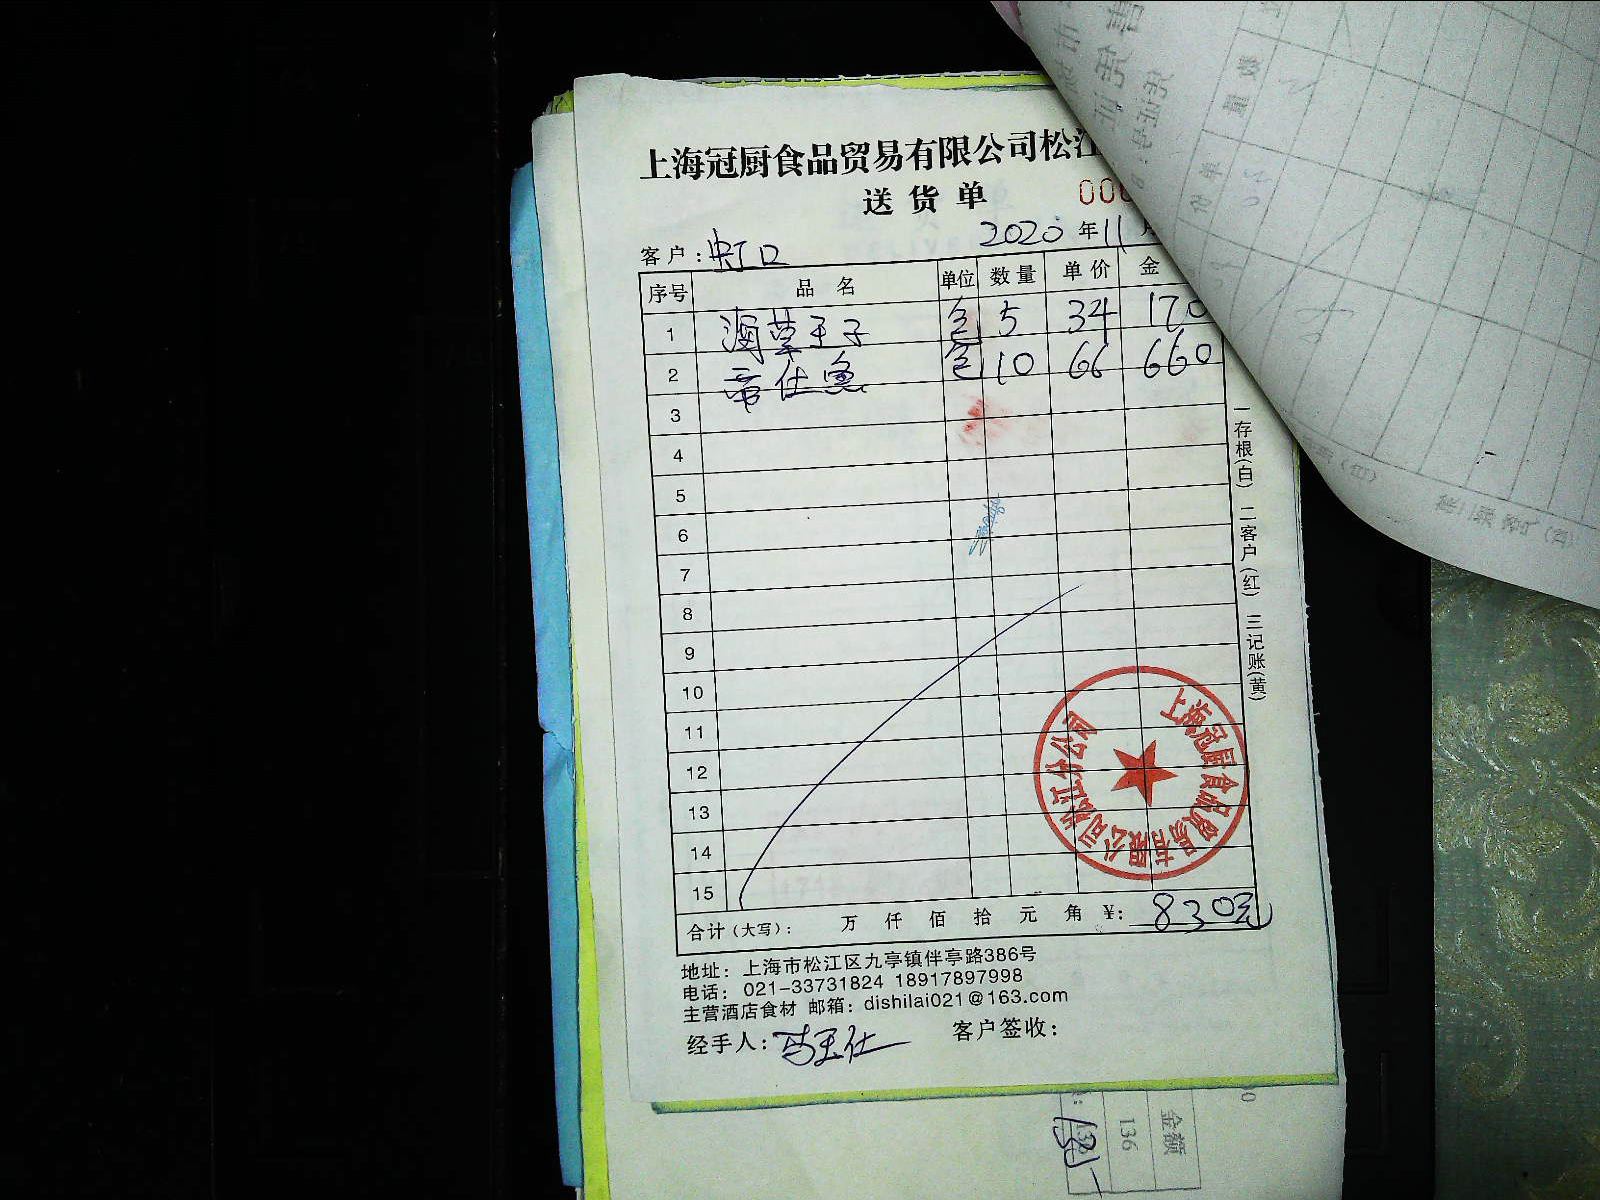 上海冠厨食品贸易有限公司松江
送货单
000
2020年11月
客户：虹口
序号 品名 单位 数量 单价 金
1 包 5 34 170
2 帝仕鱼 包 10 66 660
3
4
5
6
7
8
9
10
11
12
13
14
15
合计（大写）： 万 仟 佰 拾 元 角 ¥：830元
一存根(白) 二客户(红) 三记账(黄)
上海冠厨食品贸易有限公司松江分公司
地址：上海市松江区九亭镇伴亭路386号
电话：021-33731824 18917897998
主营酒店食材 邮箱：dishilai021@163.com
经手人： 客户签收：
金额
136